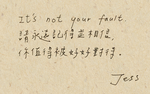 It's not your fault.
請永遠記得並相信，
你值得被好好對待。
Jess